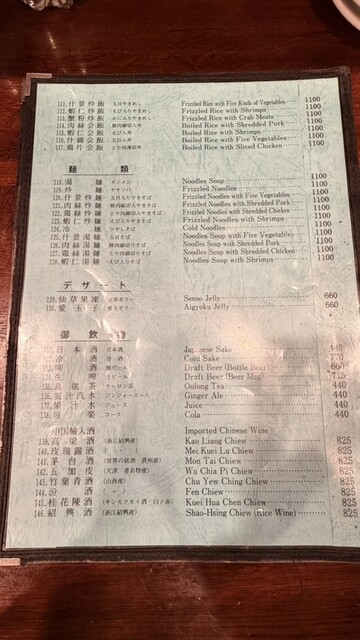 111. 什景炒飯 五目やきめし Frizzled Rice with Five Kinds of Vegetables 1100
112. 蝦仁炒飯 えび入りやきめし Frizzled Rice with Shrimps 1100
113. 蟹粉炒飯 かに入りやきめし Frizzled Rice with Crab Meats 1100
114. 肉絲会飯 豚肉細切入丼 Boiled Rice with Shredded Pork 1100
115. 蝦仁会飯 えび入丼 Boiled Rice with Shrimps 1100
116. 什錦会飯 五目入丼 Boiled Rice with Five Vegetables 1100
117. 鶏片会飯 とり肉薄切丼 Boiled Rice with Sliced Chicken 1100
麺 類
118. 湯麺 タンメン Noodles Soup 1100
119. 炒麺 ヤキソバ Frizzled Noodles 1100
120. 什景炒麺 五目入りやきそば Frizzled Noodles with Five Vegetables 1100
121. 肉絲炒麺 豚肉細切やきそば Frizzled Noodles with Shredded Pork 1100
122. 鶏絲炒麺 とり肉細切やきそば Frizzled Noodles with Shredded Chicken 1100
123. 蝦仁炒麺 えび入りやきそば Frizzled Noodles with Shrimps 1100
124. 冷麺 ひやしそば Cold Noodles 1100
125. 什景湯麺 五目そば Noodles Soup with Five Vegetables 1100
126. 肉絲湯麺 豚肉細切そば Noodles Soup with Shredded Pork 1100
127. 鶏絲湯麺 とり肉細切りそば Noodles Soup with Shredded Chicken 1100
128. 蝦仁湯麺 えび入りそば Noodles Soup with Shrimps 1100
デザート
129. 仙草果凍 仙草ゼリー Senso Jelly 660
130. 愛玉子 愛玉ゼリー Aigyoku Jelly 660
御 飲 物
日本酒 日本酒 Japanese Sake 440
冷酒 冷酒 Cold Sake 770
啤酒 瓶ビール Draft Beer (Bottle Beer) 660
生啤 生ビール Draft Beer (Beer Mag) 715
烏龍茶 ウーロン茶 Oolong Tea 440
汽水 ジンジャーエール Ginger Ale 440
137. 果汁水 ジュース Juice 440
138. 可楽 コーラ Cola 440
中国輸入酒 Imported Chinese Wine
139. 高粱酒 (浙江紹興産) Kao Liang Chiew 825
140. 玫瑰露酒 Mei Kuei Lu Chiew 825
141. 茅台酒 (世界の銘酒 貴州産) Mon Tai Chiew 825
142. 五加皮 (天津 著名特産) Wu Chia Pi Chiew 825
143. 竹葉青酒 (山西産) Chu Yew Ching Chiew 825
144. 汾酒 Fen Chiew 825
145. 桂花陳酒 (キンモクセイ酒・白/赤) Kuei Hua Chen Chiew 825
146. 紹興酒 (浙江紹興産) Shao-Hsing Chiew (Rice Wine) 825